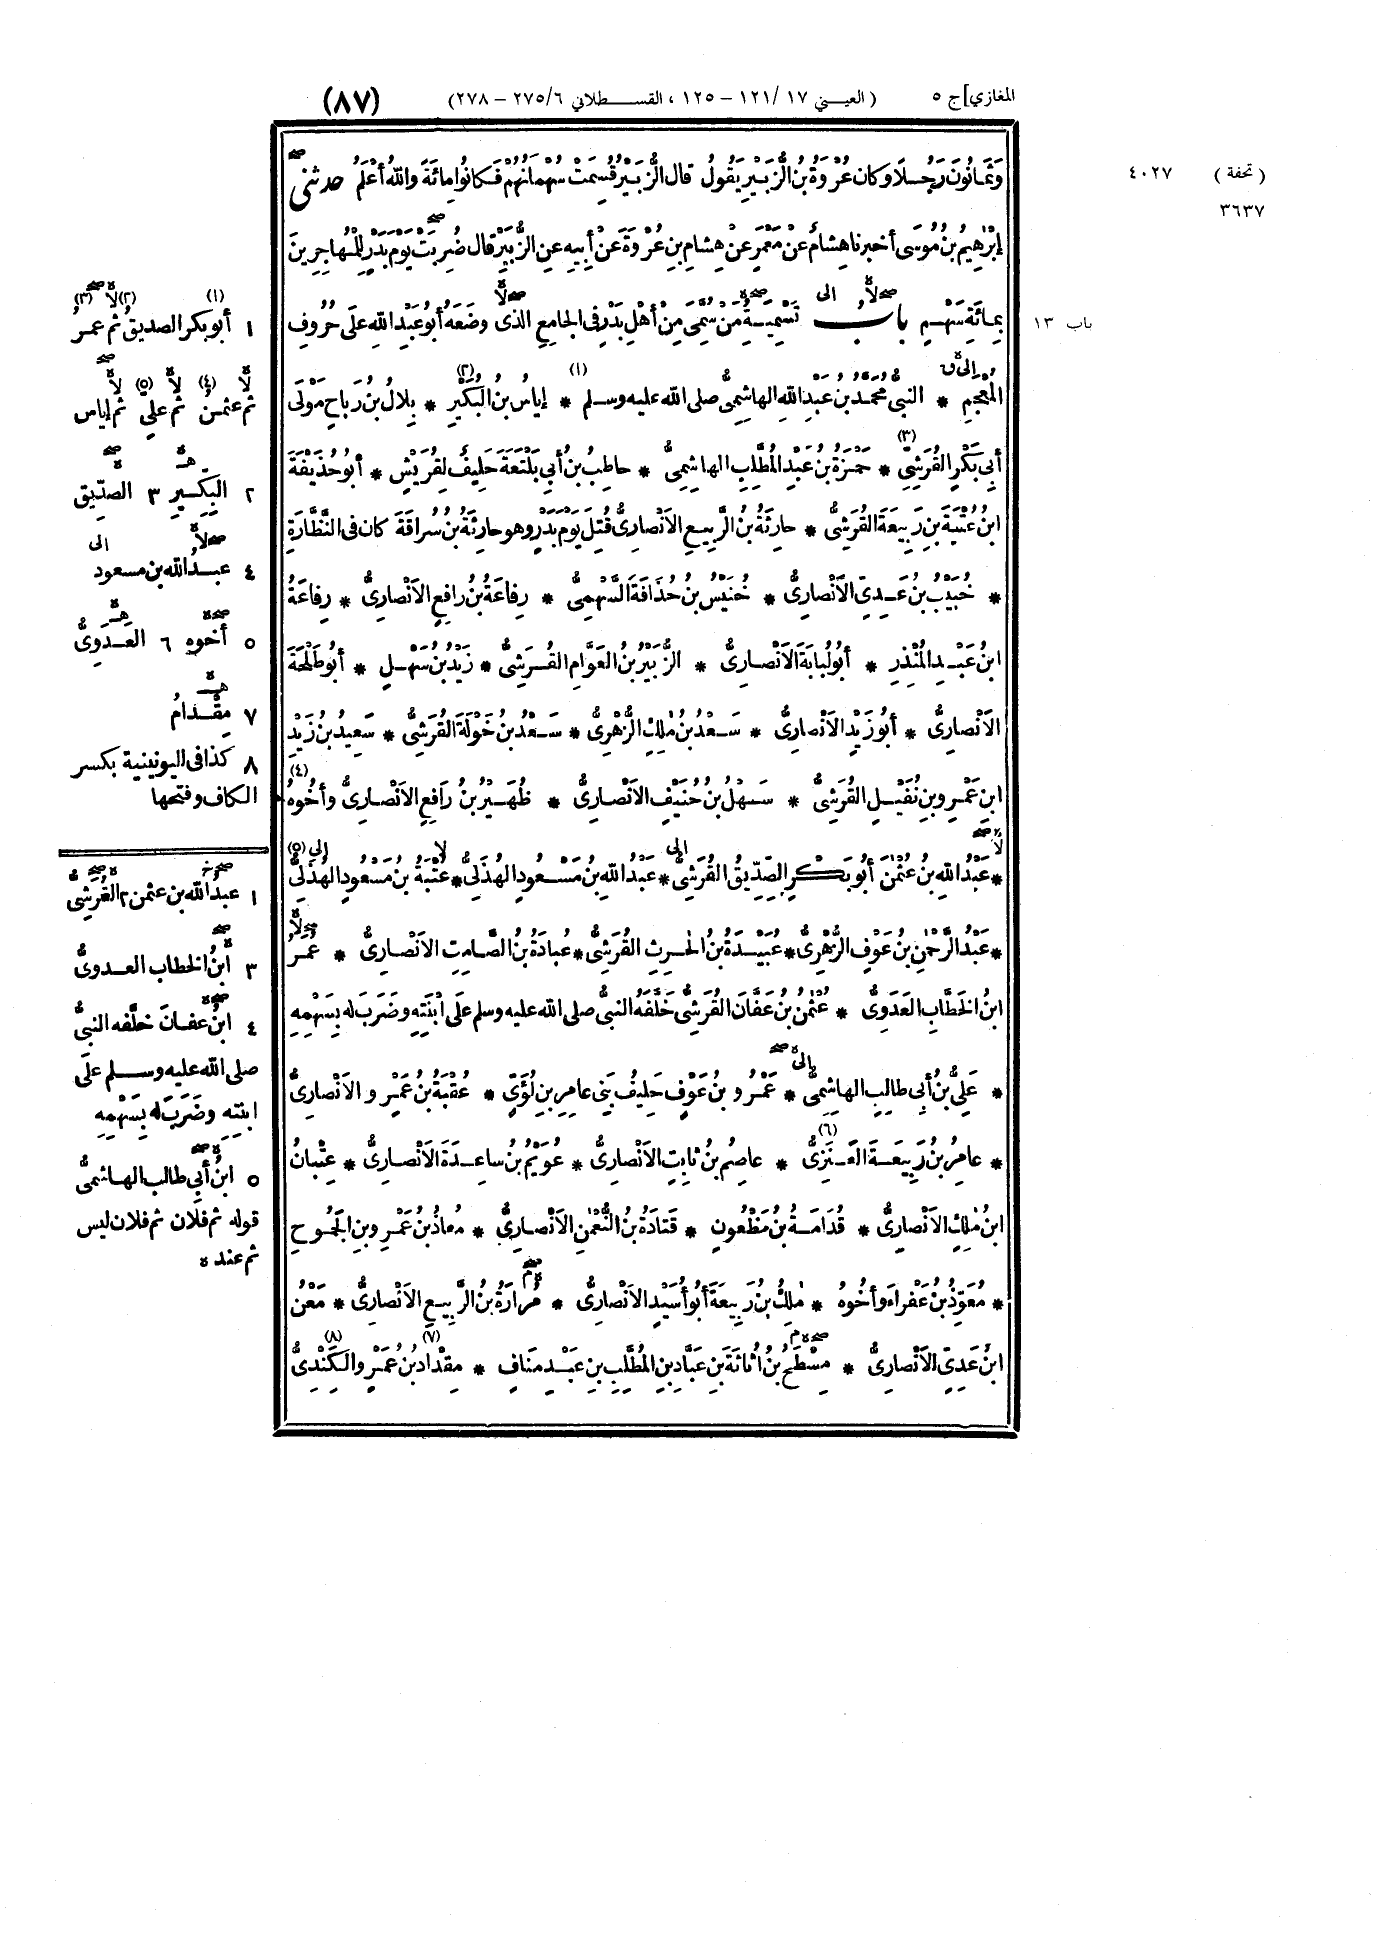 المغازي] ج ٥
(العيني ١٧/ ١٢١ - ١٢٥ ، القسطلاني ٦/ ٢٧٥ - ٢٧٨)
(٨٧)
(تحفة) ٤٠٢٧
٣٦٣٧
باب ١٣
وَثَمَانُونَ رَجُلًا وكان عُرْوَةُ بنُ الزُّبَيْرِ يَقُولُ قال الزُّبَيْرُ قُسِمَتْ سُهْمَانُهُمْ فَكانُوا مِائَةً واللهُ أعْلَمُ حدثنى
إبْرٰهِيمُ بنُ مُوسَى أخبرنا هِشامٌ عنْ مَعْمَرٍ عنْ هِشامِ بنِ عُرْوَةَ عَنْ أبِيهِ عنِ الزُّبَيْرِ قال ضُرِبَتْ يَوْمَ بَدْرٍ لِلْمُهاجِرِينَ
بِمِائَةِ سَهْمٍ بابُ تَسْمِيَةُ مَنْ سُمِّىَ مِنْ أهْلِ بَدْرٍ فى الجامِعِ الذى وضَعَهُ أبُو عَبْدِ اللهِ علَى حُرُوفِ
المُعْجَمِ * النبىُّ مُحَمَّدُ بنُ عَبْدِ اللهِ الهاشِمِىُّ صلى الله عليه وسلم (١) * إياسُ بنُ البُكَيْرِ (٢) * بِلالُ بنُ رَباحٍ مَوْلَى
أبِى بَكْرٍ القُرَشِىِّ (٣) * حَمْزَةُ بنُ عَبْدِ المُطَّلِبِ الهاشِمِىُّ * حاطِبُ بنُ أبِى بَلْتَعَةَ حَلِيفٌ لِقُرَيْشٍ * أبُو حُذَيْفَةَ
ابنُ عُتْبَةَ بنِ رَبِيعَةَ القُرَشِىُّ * حارِثَةُ بنُ الرَّبِيعِ الأنْصارِىُّ قُتِلَ يَوْمَ بَدْرٍ وهو حارِثَةُ بنُ سُراقَةَ كان فى النَّظَّارَةِ
* خُبَيْبُ بنُ عَدِىٍّ الأنْصارِىُّ * خُنَيْسُ بنُ حُذَافَةَ السَّهْمِىُّ * رِفاعَةُ بنُ رافِعٍ الأنْصارِىُّ * رِفاعَةُ
ابنُ عَبْدِ المُنْذِرِ * أبُو لُبابَةَ الأنْصارِىُّ * الزُّبَيْرُ بنُ العَوَّامِ القُرَشِىُّ * زَيْدُ بنُ سَهْلٍ * أبُو طَلْحَةَ
الأنْصارِىُّ * أبُو زَيْدٍ الأنْصارِىُّ * سَعْدُ بنُ مٰلِكٍ الزُّهْرِىُّ * سَعْدُ بنُ خَوْلَةَ القُرَشِىُّ * سَعِيدُ بنُ زَيْدِ
ابنِ عَمْرِو بنِ نُفَيْلٍ القُرَشِىُّ * سَهْلُ بنُ حُنَيْفٍ الأنْصارِىُّ * ظُهَيْرُ بنُ رَافِعٍ الأنْصارِىُّ وأخُوهُ (٤)
* عَبْدُ اللهِ بنُ عُثْمٰنَ أبُو بَكْرٍ الصِّدِّيقُ القُرَشِىُّ * عَبْدُ اللهِ بنُ مَسْعُودٍ الهُذَلِىُّ * عُتْبَةُ بنُ مَسْعُودٍ الهُذَلِىُّ (٥)
* عَبْدُ الرَّحْمٰنِ بنُ عَوْفٍ الزُّهْرِىُّ * عُبَيْدَةُ بنُ الحٰرِثِ القُرَشِىُّ * عُبادَةُ بنُ الصَّامِتِ الأنْصارِىُّ * عُمَرُ
ابنُ الخَطَّابِ العَدَوِىُّ * عُثْمٰنُ بنُ عَفَّانَ القُرَشِىُّ خَلَّفَهُ النبىُّ صلى الله عليه وسلم علَى ابْنَتِهِ وضَرَبَ لَهُ بِسَهْمِهِ
* عَلِىُّ بنُ أبِى طالِبٍ الهاشِمِىُّ * عَمْرُو بنُ عَوْفٍ حَلِيفُ بَنِى عامِرِ بنِ لُؤَىٍّ * عُقْبَةُ بنُ عَمْرٍو الأنْصارِىُّ
* عامِرُ بنُ رَبِيعَةَ العَنَزِىُّ (٦) * عاصِمُ بنُ ثابِتٍ الأنْصارِىُّ * عُوَيْمُ بنُ ساعِدَةَ الأنْصارِىُّ * عِتْبانُ
ابنُ مٰلِكٍ الأنْصارِىُّ * قُدَامَةُ بنُ مَظْعُونٍ * قَتادَةُ بنُ النُّعْمٰنِ الأنْصارِىُّ * مُعاذُ بنُ عَمْرِو بنِ الجَمُوحِ
* مُعَوِّذُ بنُ عَفْراءَ وأخُوهُ * مٰلِكُ بنُ رَبِيعَةَ أبُو أُسَيْدٍ الأنْصارِىُّ * مُرارَةُ بنُ الرَّبِيعِ الأنْصارِىُّ * مَعْنُ
ابنُ عَدِىٍّ الأنْصارِىُّ * مِسْطَحُ بنُ أُثاثَةَ بنِ عَبَّادِ بنِ المُطَّلِبِ بنِ عَبْدِ مَنافٍ * مِقْدادُ بنُ عَمْرٍو (٧) الكِنْدِىُّ (٨)
١ أبو بكر الصديقُ ثم عمرُ
ثم عثمٰنُ ثم علىٌّ ثم إياس
٢ البِكِّيرِ ٣ الصدِّيقِ
٤ عبدُ الله بن مسعود
٥ أخوه ٦ العَدَوِىُّ
٧ مِقْدامُ
٨ كذا فى اليونينية بكسر
الكاف وفتحها
١ عبدُ الله بن عثمن ٢ القُرَشِىُّ
٣ ابنُ الخطاب العدوىُّ
٤ ابنُ عفانَ خلَّفه النبىُّ
صلى الله عليه وسلم علَى
ابنتِهِ وضَرَبَ له بِسَهْمِهِ
٥ ابنُ أبى طالب الهاشمىُّ
قوله ثم فلان ثم فلان ليس
ثم عند ه